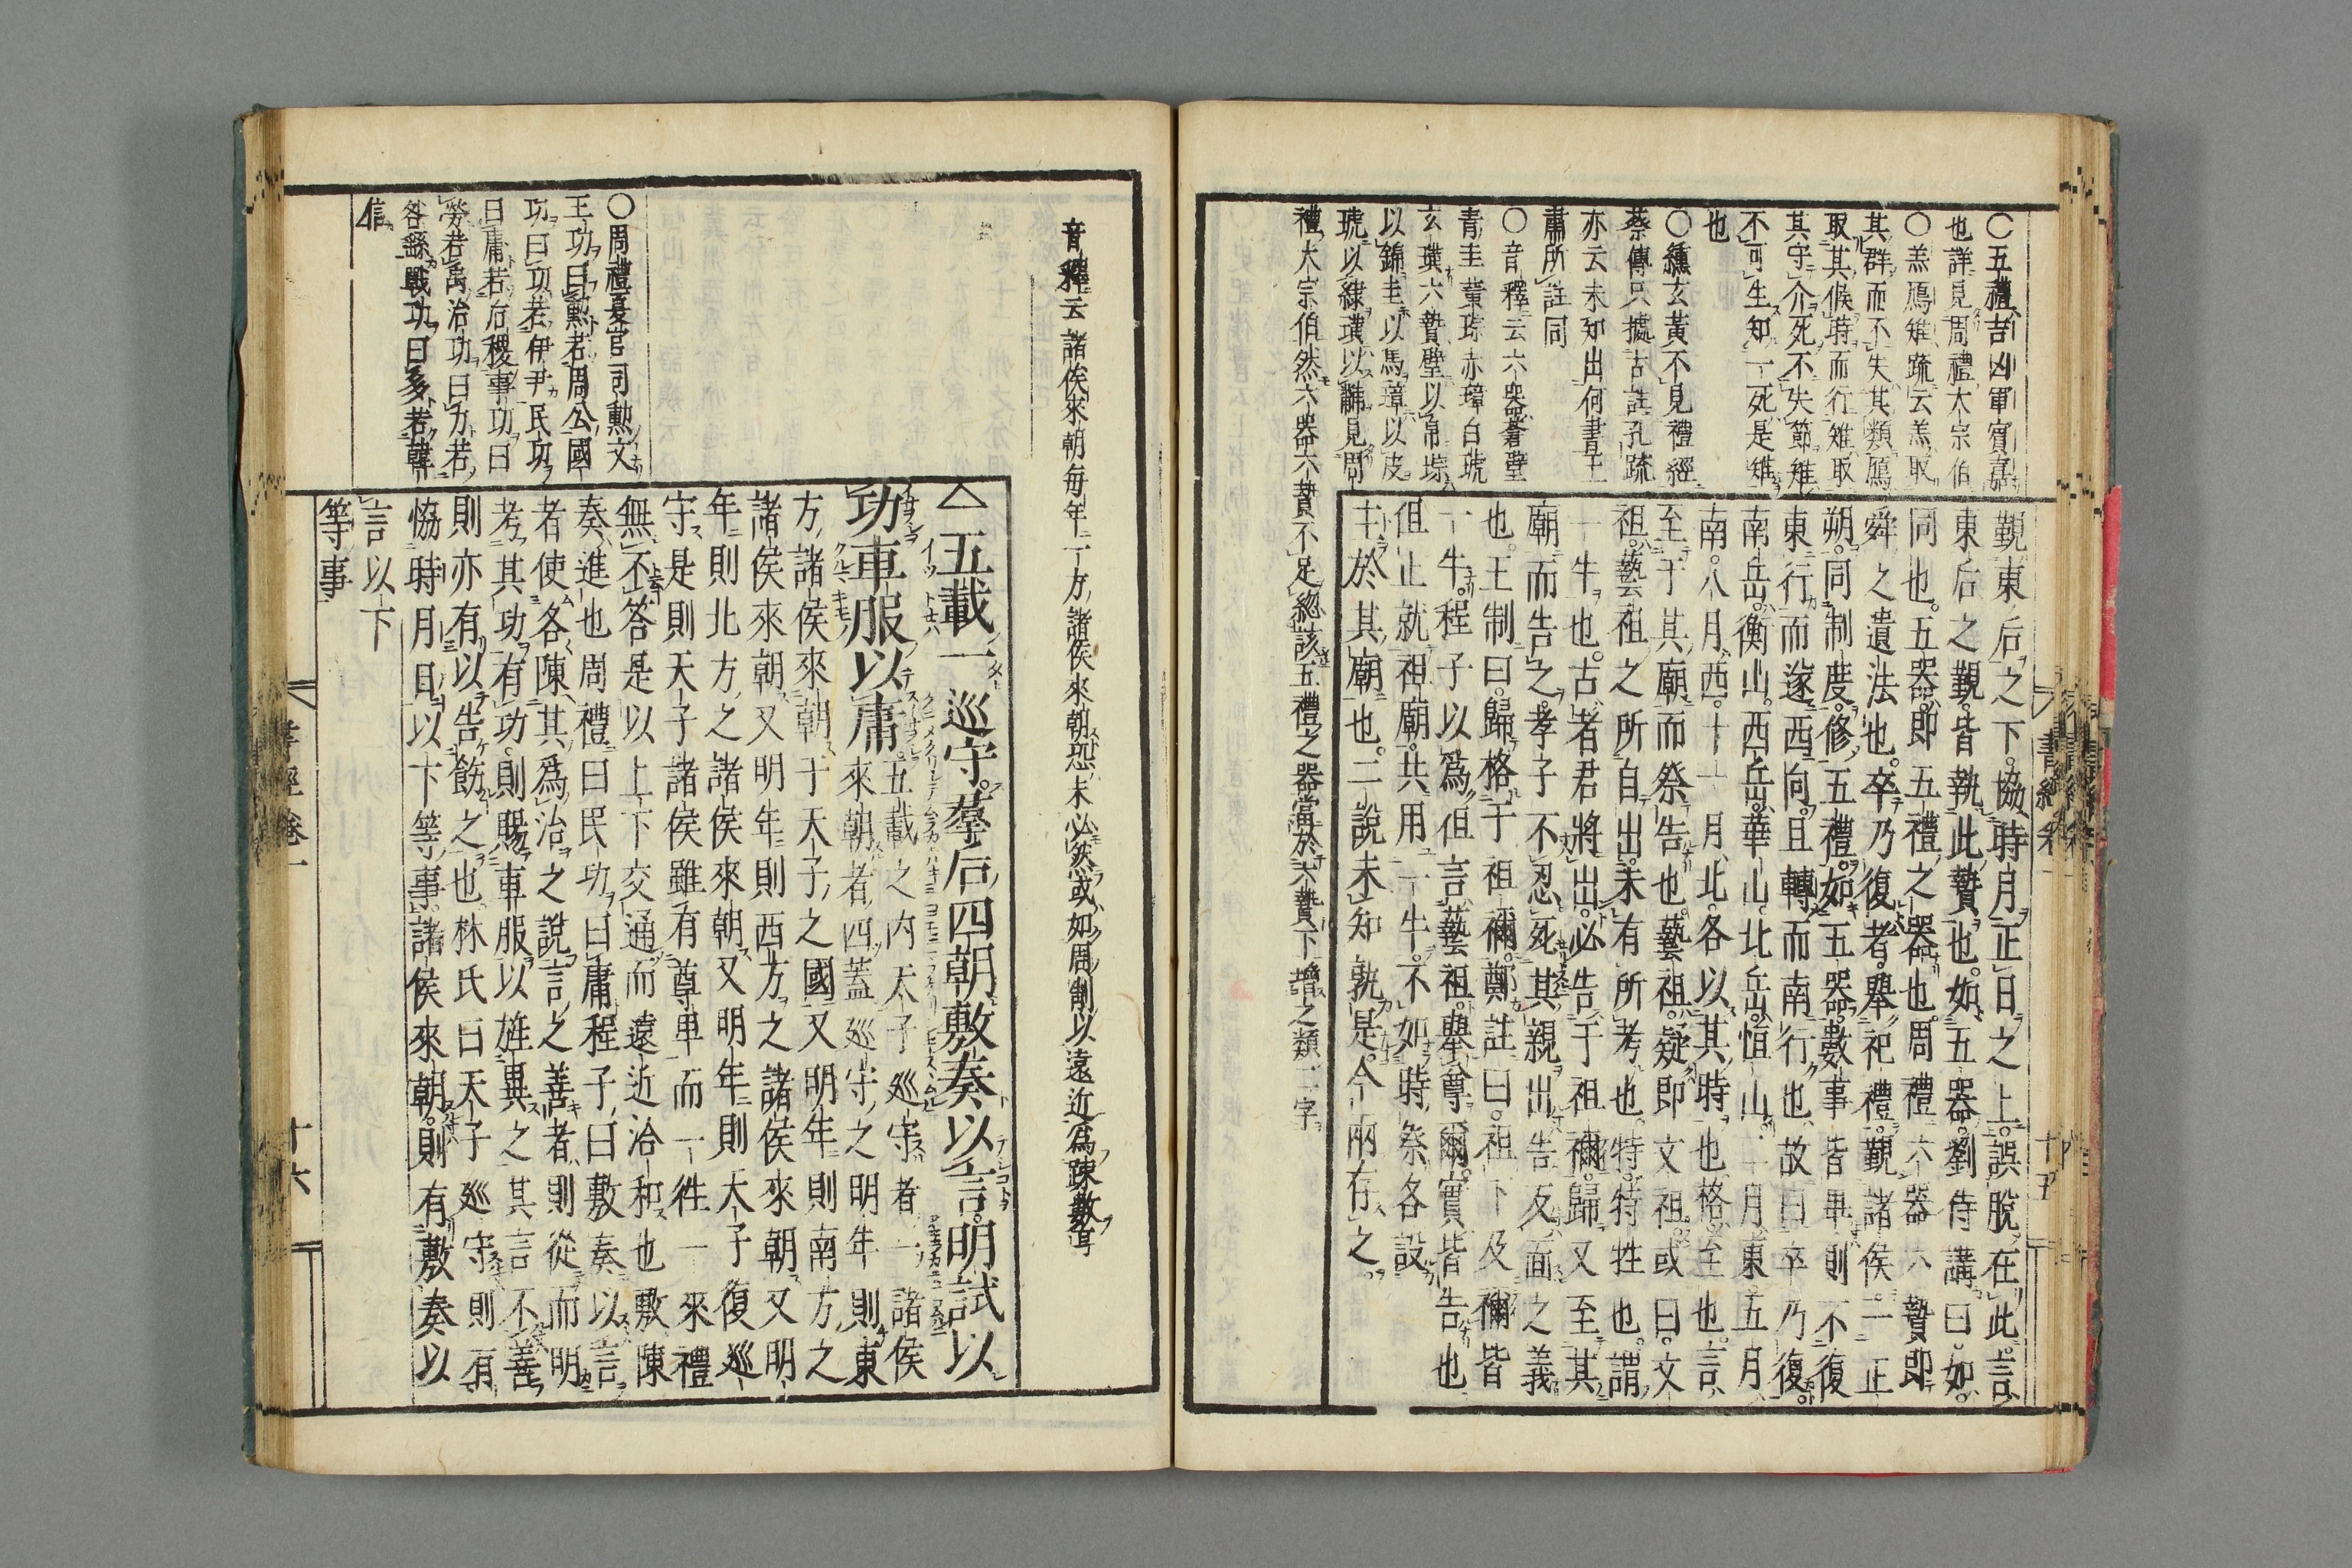 ○五禮吉凶軍賓嘉
也詳見周禮大宗伯
○羔鴈雉疏云羔取
其群而不失其類鴈
取其候時而行雉取
其守介死不失節雉
不可生知一死是雉
也
○纁玄黃不見禮經
蔡傳只據古註孔疏
亦云未知出何書王
肅所註同
○音釋云六器蒼璧
青圭黃琮赤璋白琥
玄璜六贄璧以帛琮
以錦圭以馬璋以皮
琥以繡璜以黼見周
禮大宗伯然六器六贄不足總該五禮之器當於六贄下增之類二字
覲東后之下協時月正日之上誤脫在此言
東后之覲皆執此贄也如五器劉侍講曰如
同也五器即五禮之器也周禮六器六贄即
舜之遺法也卒乃復者舉祀禮覲諸侯一正
朔同制度修五禮如五器數事皆畢則不復
東行而遂西向且轉而南行也故曰卒乃復
南岳衡山西岳華山北岳恒山二月東五月
南八月西十一月北各以其時也格至也言
至于其廟而祭告也藝祖疑即文祖或曰文
祖藝祖之所自出未有所考也特特牲也謂
一牛也古者君將出必告于祖禰歸又至其
廟而告之孝子不忍死其親出告反面之義
也王制曰歸格于祖禰鄭註曰祖下及禰皆
一牛程子以爲但言藝祖舉尊爾實皆告也
但止就祖廟共用一牛不如時祭各設
主於其廟也二說未知孰是今兩存之
書經卷一
十五
音釋云諸侯來朝每年一方諸侯來朝恐未必然或如周制以遠近爲疎數耳
△五載一巡守羣后四朝敷奏以言明試以
功車服以庸五載之内天子巡守者一諸侯
來朝者四蓋巡守之明年則東
方諸侯來朝于天子之國又明年則南方之
諸侯來朝又明年則西方之諸侯來朝又明
年則北方之諸侯來朝又明年則天子復巡
守是則天子諸侯雖有尊卑而一往一來禮
無不答是以上下交通而遠近洽和也敷陳
奏進也周禮曰民功曰庸程子曰敷奏以言
者使各陳其爲治之說言之善者則從而明
考其功有功則賜車服以旌異之其言不善
則亦有以告飭之也林氏曰天子巡守則有
協時月日以下等事諸侯來朝則有敷奏以
言以下
等事
○周禮夏官司勲文
王功曰勲若周公國
功曰功若伊尹民功
曰庸若后稷事功曰
勞若禹治功曰力若
咎繇戰功曰多若韓
信
書經卷一
十六